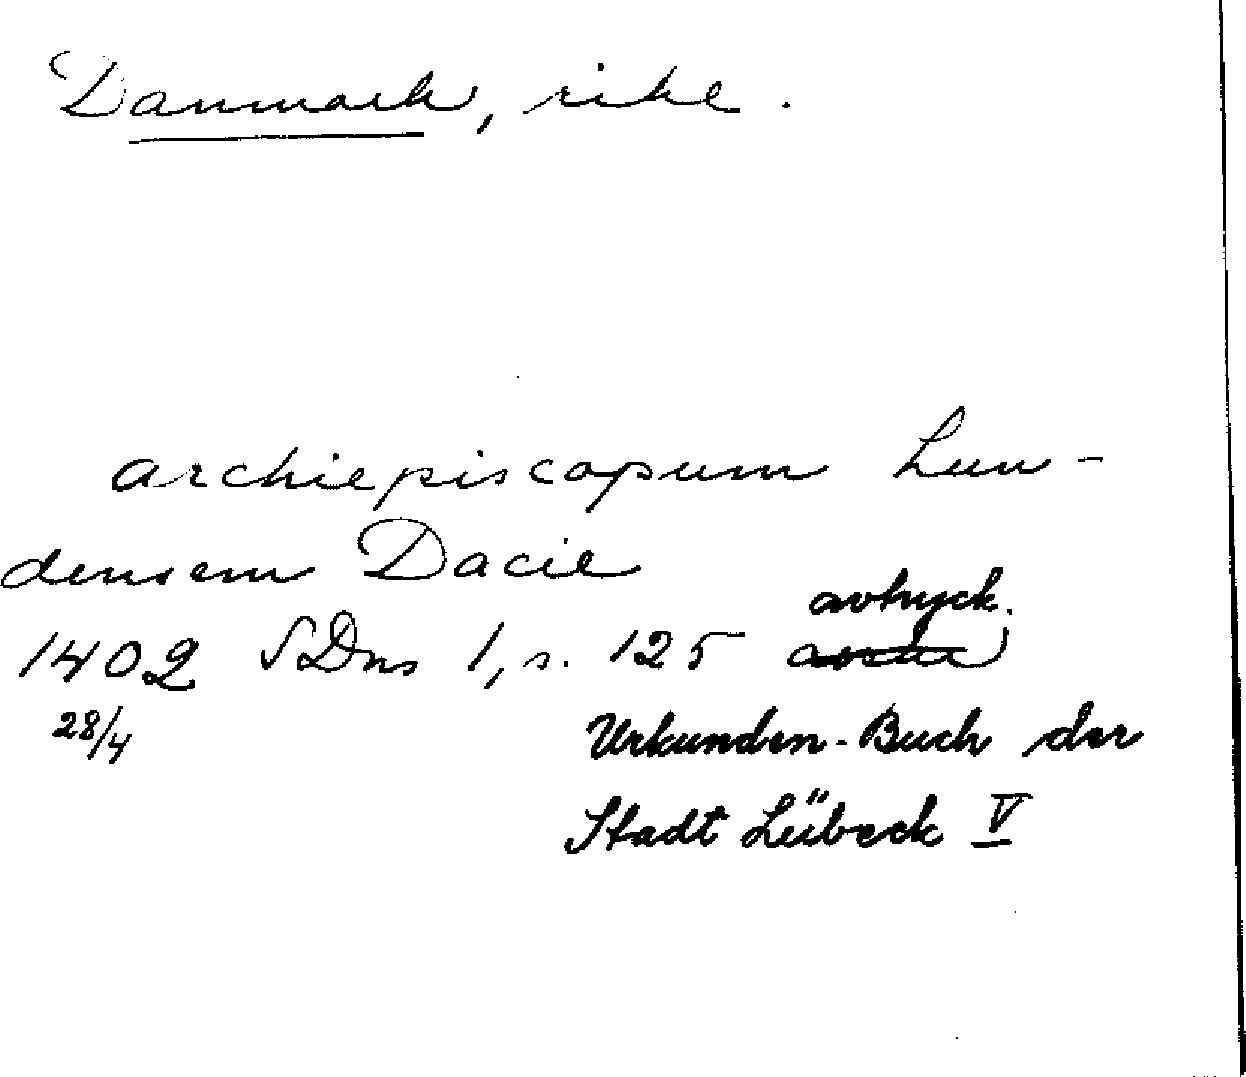 Danmark, rike.
archiepiscopum Lun-
densem Dacie
avtryck.
1402 SDns 1, s. 125
28/4 Urkunden-Buch der
Stadt Lübeck V